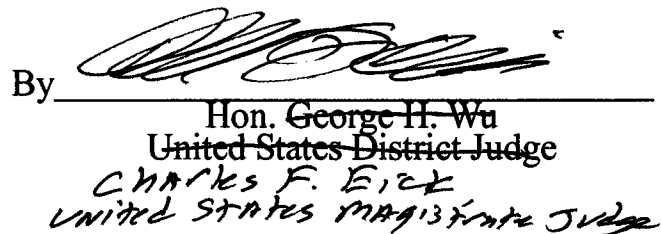 By
Hon. George H. Wu
United States District Judge
Charles F. Eick
United States Magistrate Judge